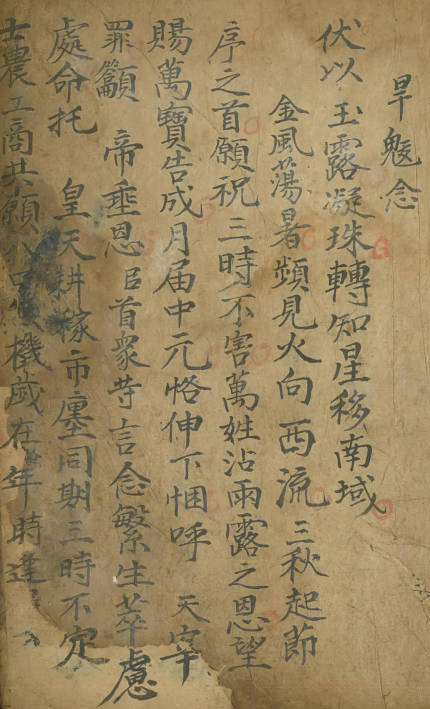 旱魃念
伏以 玉露凝珠轉知星移南域
金風蕩暑頻見火向西流三秋起節
序之首願祝三時不害萬姓沾雨露之恩望
賜萬寶告成月届中元恪伸下悃呼 天宰
罪籲 帝垂恩臣首衆等言念繁生萃慮
處命托 皇天耕稼市廛同期三時不定
士農工商共願 機歲在年時逢